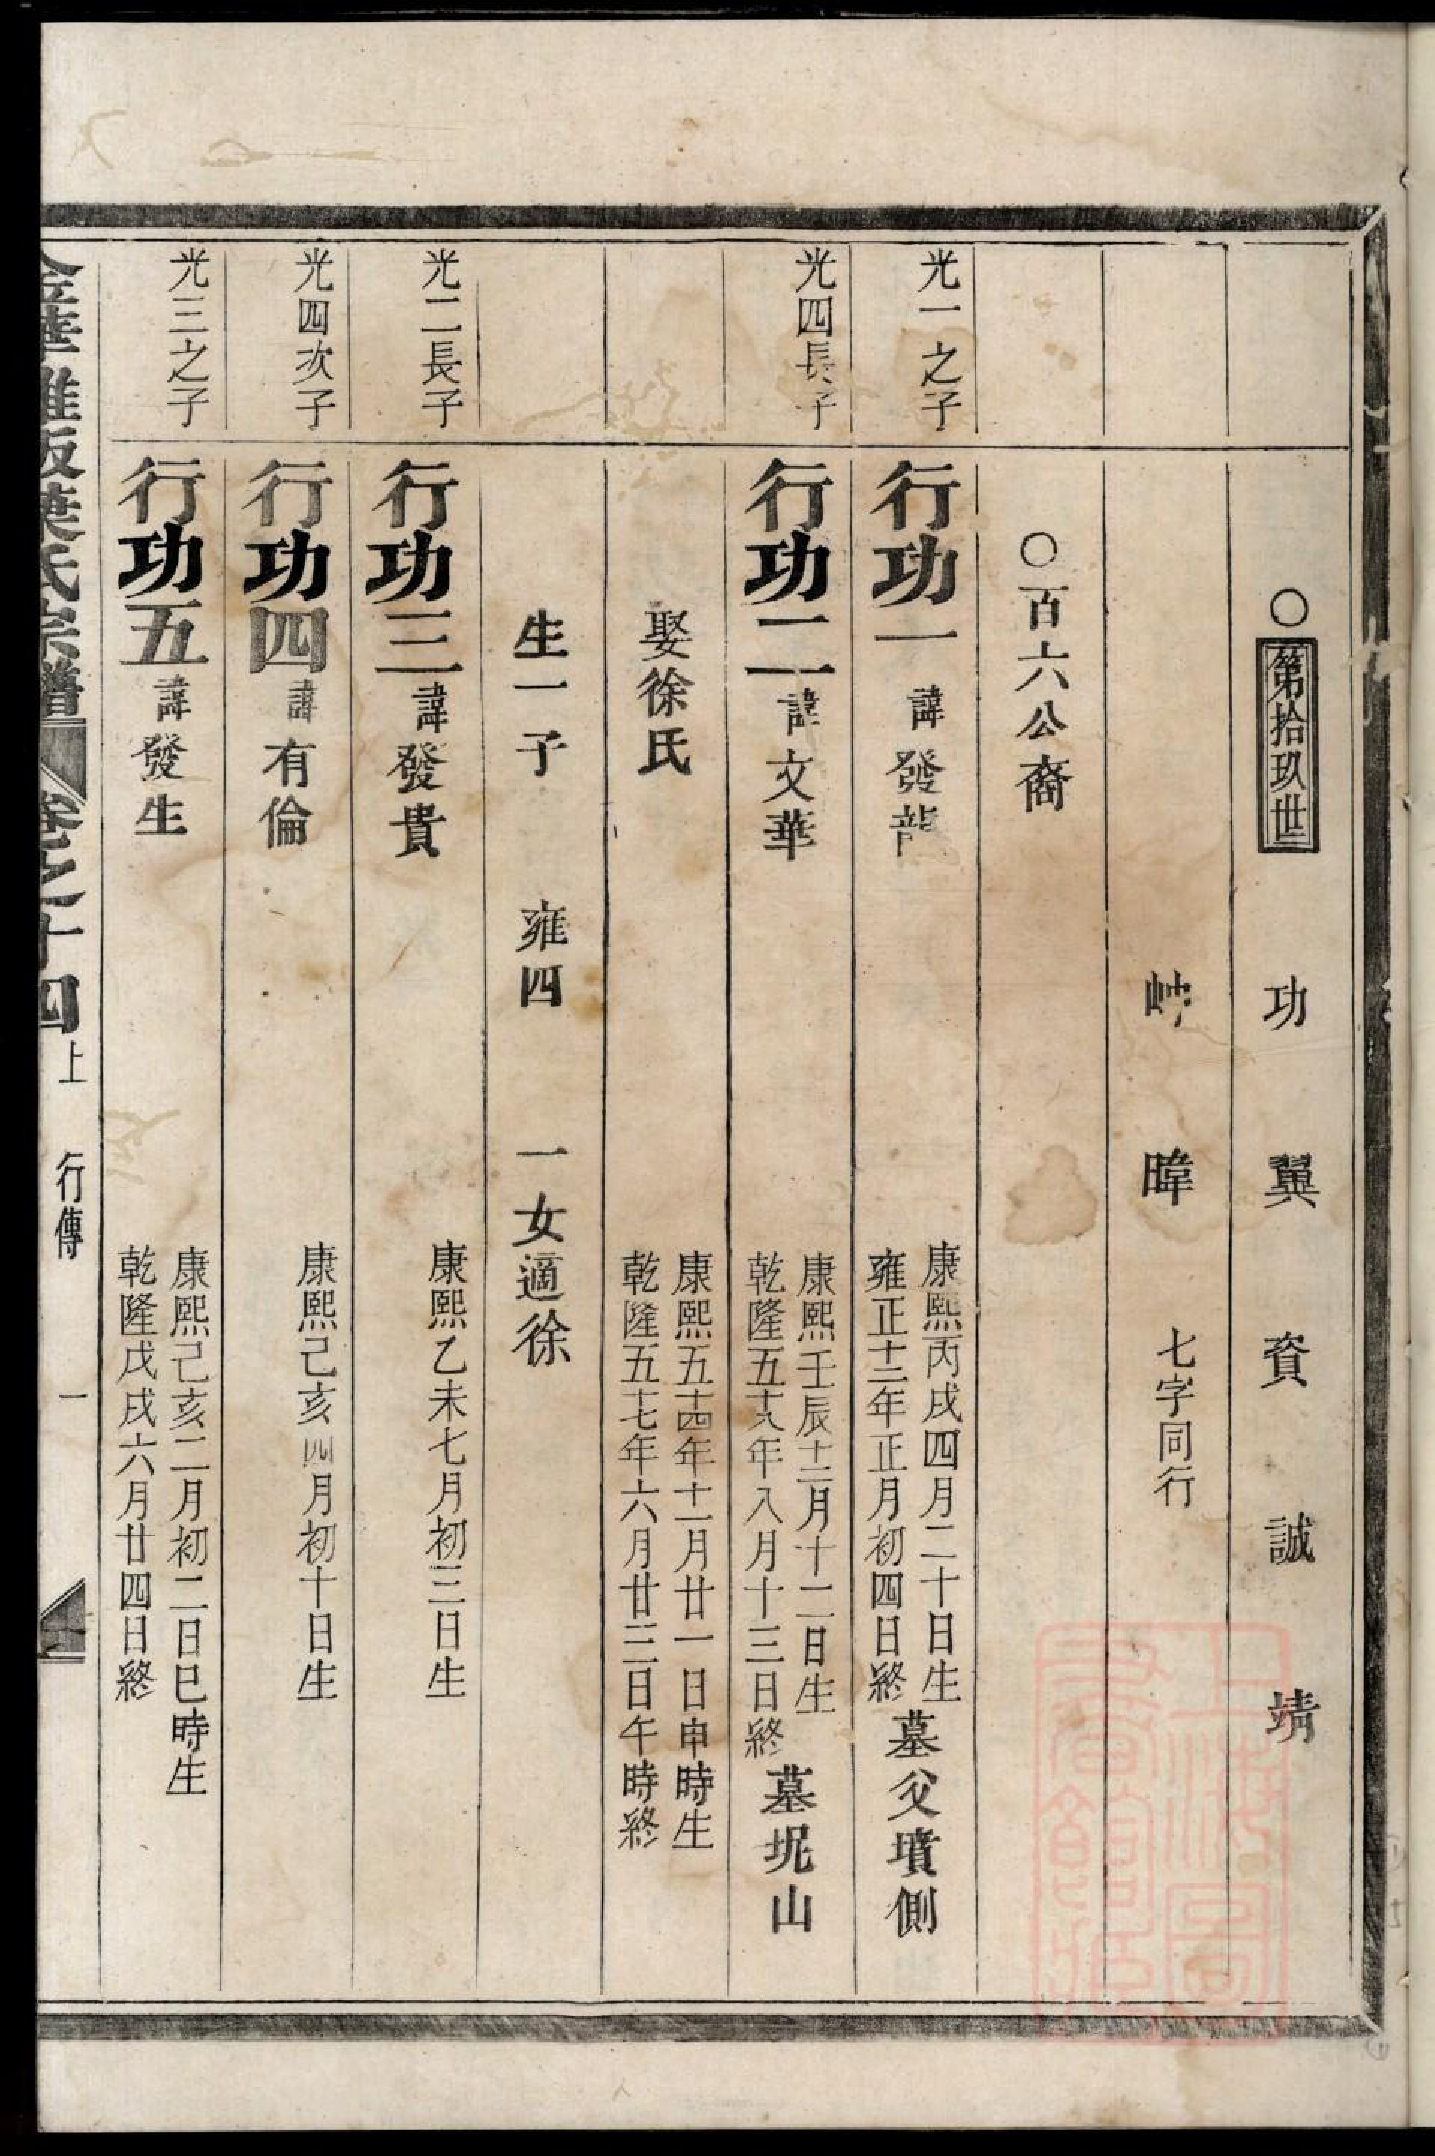 ○第拾玖世 功 翼 資 誠 靖
暐 七字同行
○百六公裔
光一之子 行功一 諱發龍 康熙丙戌四月二十日生 雍正十三年正月初四日終 墓父墳側
光四長子 行功二 諱文華 康熙壬辰十二月十二日生 乾隆五十八年八月十三日終 墓坭山
娶徐氏 康熙五十四年十一月廿一日申時生 乾隆五十七年六月廿三日午時終
生一子 雍四 一女適徐
光二長子 行功三 諱發貴 康熙乙未七月初三日生
光四次子 行功四 諱有倫 康熙己亥四月初十日生
光三之子 行功五 諱發生 康熙己亥二月初二日巳時生 乾隆戊戌六月廿四日終
金華雅畈葉氏宗譜 卷之十四上 行傳 一
上海圖書館藏